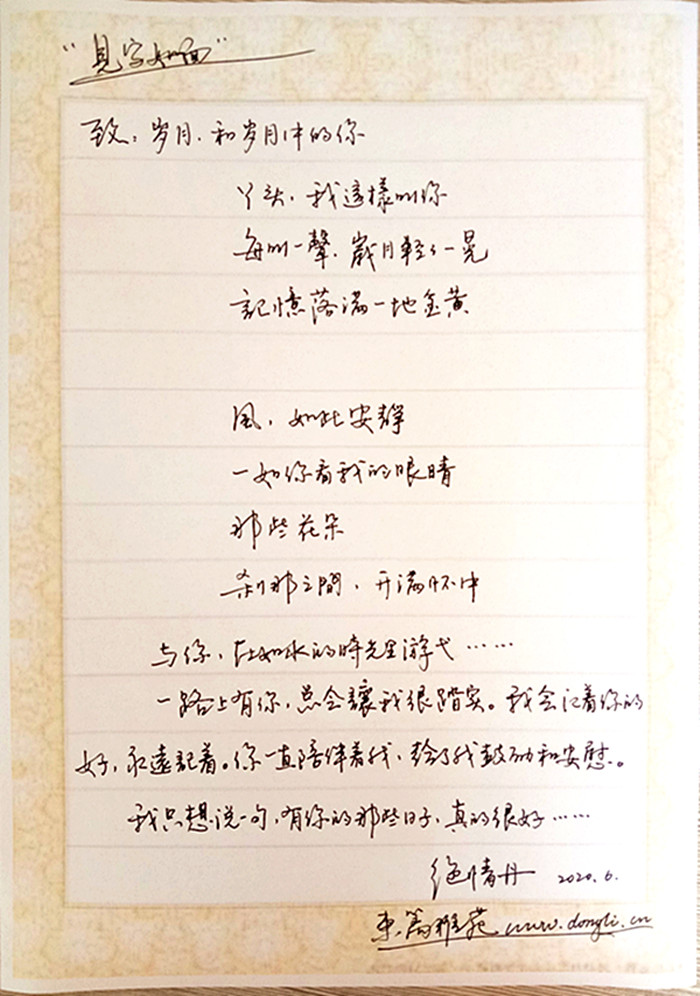 “見字如面”
致：岁月.和岁月中的你
丫头，我這樣叫你
每叫一聲.歲月輕々一晃
記憶落满一地金黄
風，如此安靜
一如你看我的眼睛
那些花朵
刹那之間，开满怀中
与你，在如水的時光里游弋……
一路上有你，总会讓我很踏实。我会记着你的
好，永遠記着。你一直陪伴着我，给了我鼓励和安慰。
我只想说一句，有你的那些日子，真的很好……
绝情丹 2020.6.
东篱雅苑 www.dongli.cn